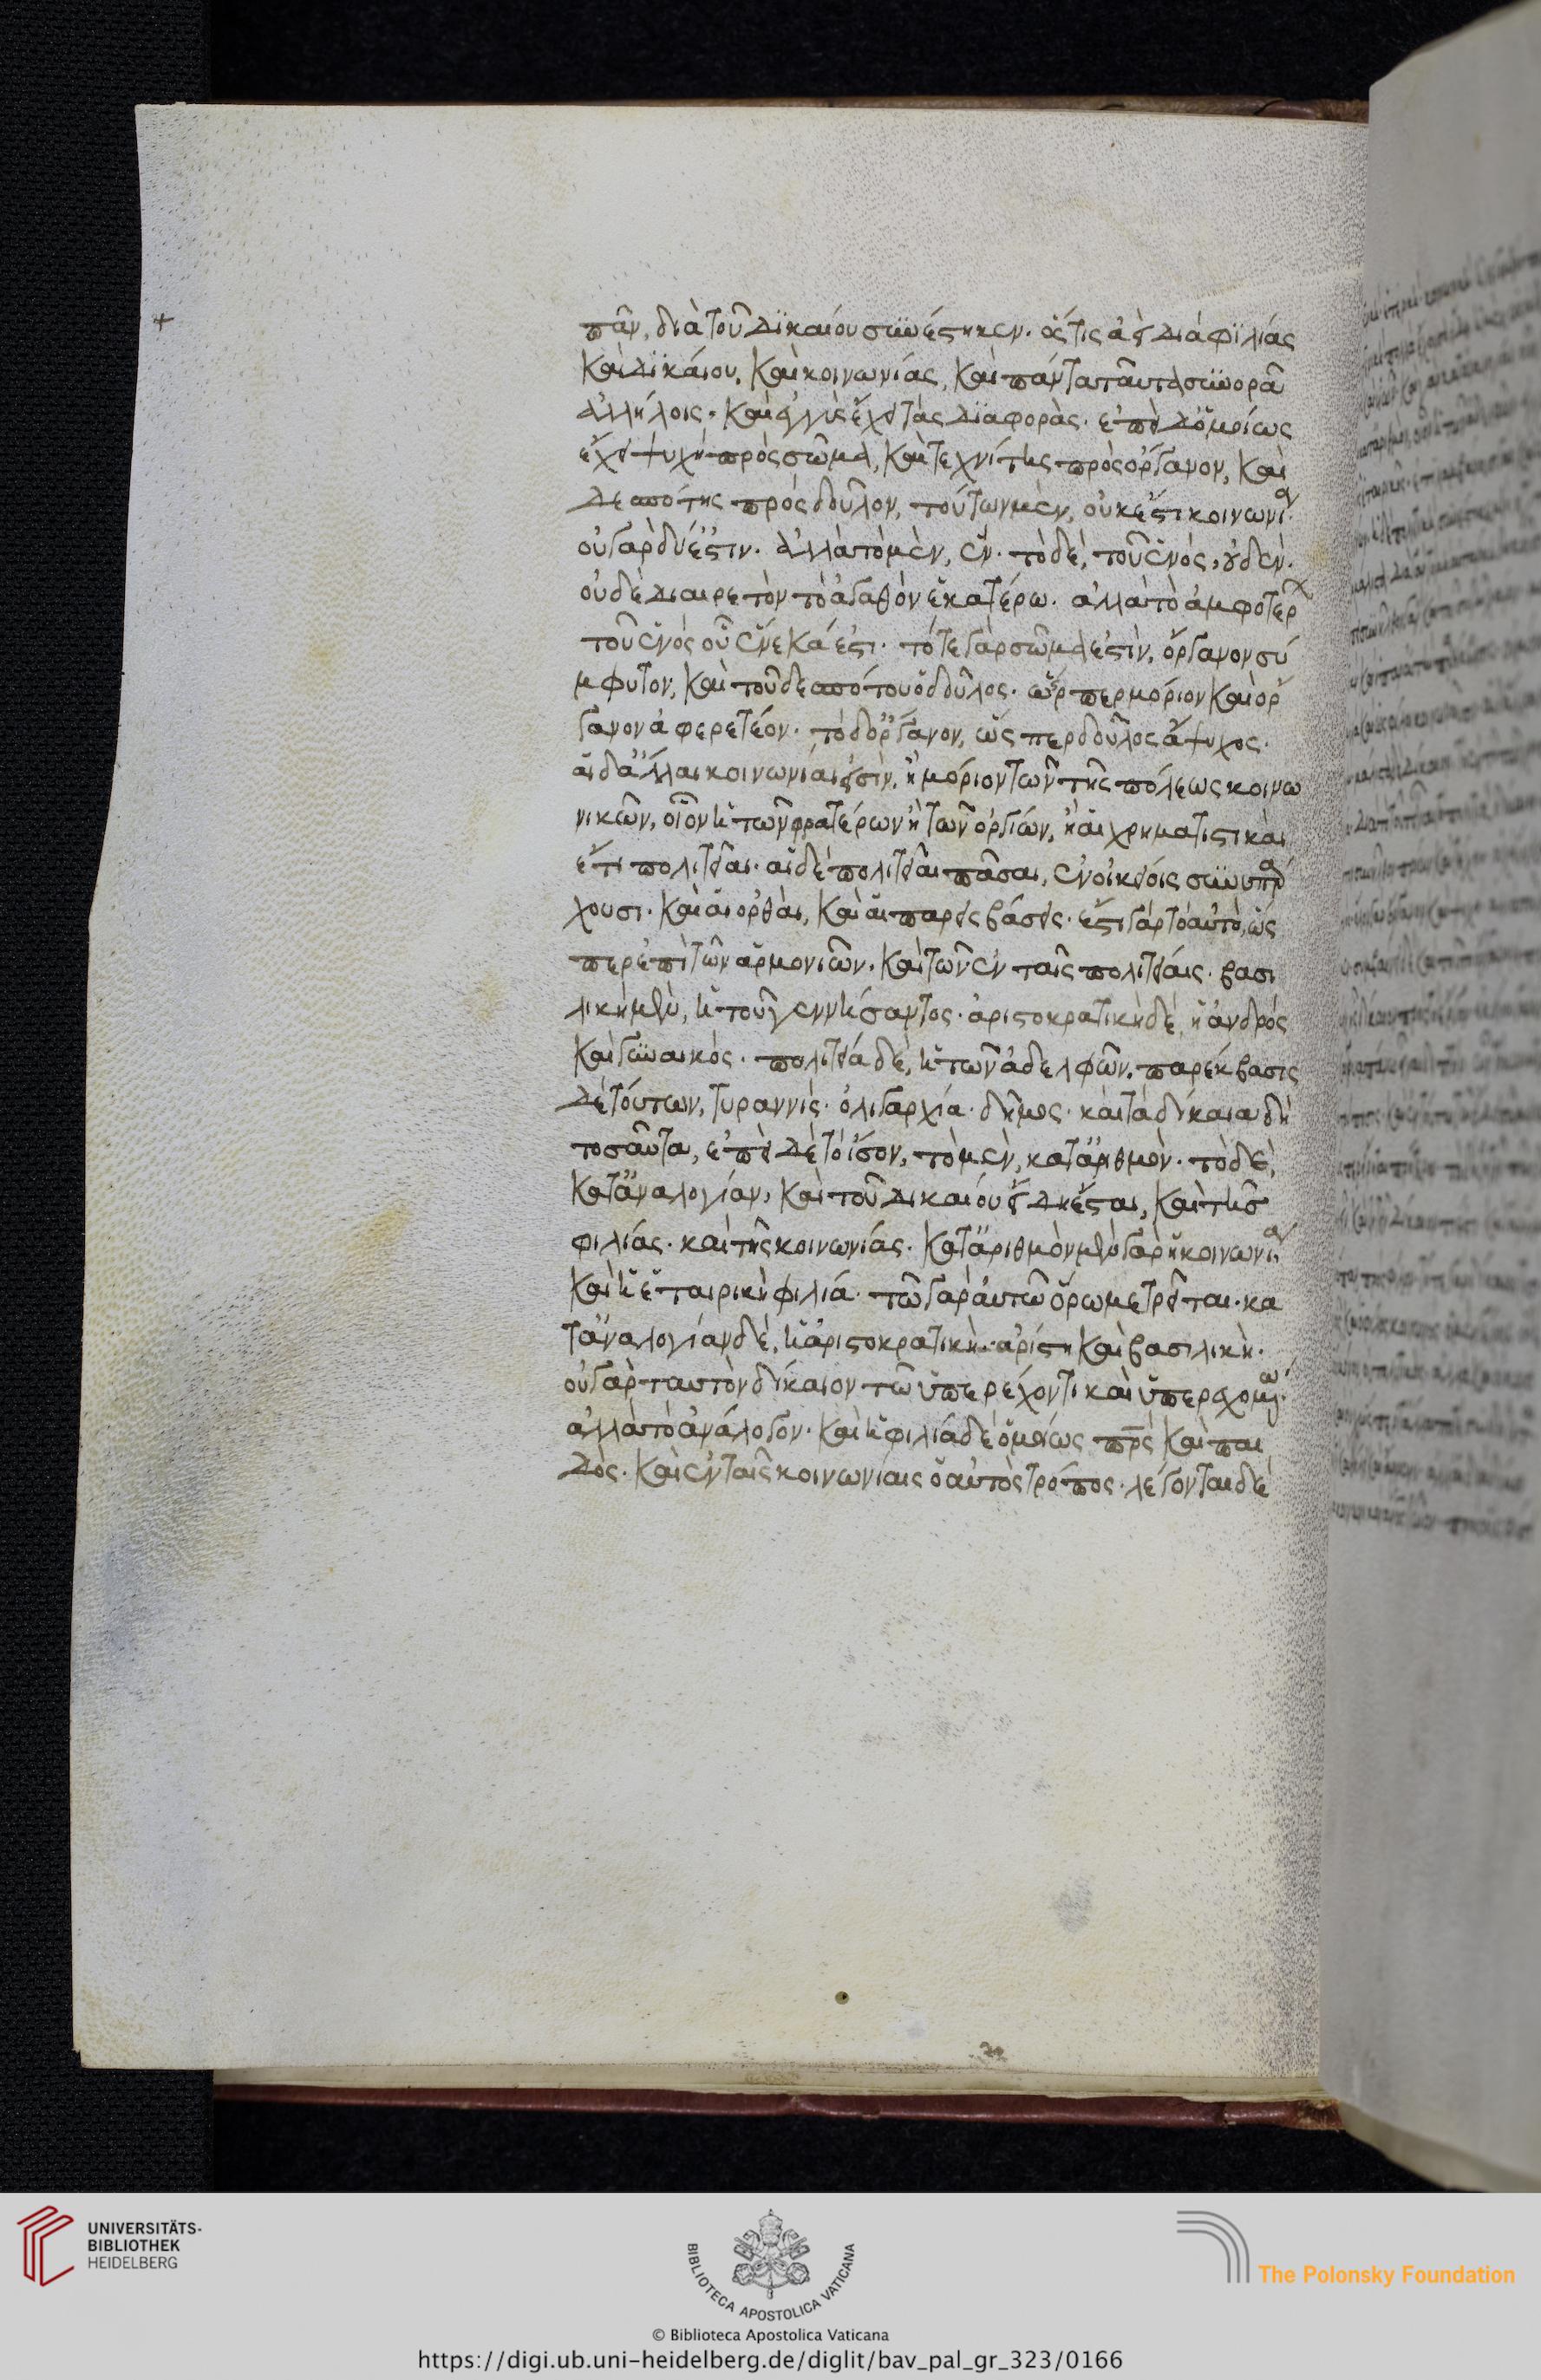 πᾶν, διὰ τοῦ δϊκαίου συνέστηκεν. ὥστις εἴδη φϊλίας
καὶ δϊκαίου, καὶ κοινωνίας, καὶ πάντα ταῦτα σύνορα
ἀλλήλοις. καὶ ἐγγὺς ἔχει τὰς δϊαφορὰς. ἐπεὶ δ ὁμοίως
ἔχει ψυχὴ πρὸς σῶμα, καὶ τεχνίτης πρὸς ὄργανον, καὶ
δεσπότης πρὸς δοῦλον, τούτων μὲν, οὐκ ἔστι κοινωνία.
οὐ γὰρ δύ ἔστιν. ἀλλὰ τὸ μὲν, ἕν. τὸ δὲ, τοῦ ἑνός, οὐδὲν.
οὐδὲ διαιρετὸν τὸ ἀγαθὸν ἑκατέρω. ἀλλὰ τὸ ἀμφοτέρων
τοῦ ἑνὸς οὗ ἕνεκά ἐστι. τό τε γὰρ σῶμα ἐστὶν, ὄργανον σύ
μφυτον, καὶ τοῦ δεσπότου ὁ δοῦλος. ὥσπερ μόριον καὶ ὄρ
γανον ἀφερετέον. τὸ δ ὄργανον, ὥσπερ δοῦλος ἄψυχος.
αἱ δ ἄλλαι κοινωνίαι εἰσὶν, ἢ μόριον τῶν τῆς πόλεως κοινω
νικῶν, οἷον ἡ τῶν φρατέρων ἢ τῶν ὀργίων, ἢ αἱ χρηματιστικαὶ
ἔτι πολιτεῖαι. αἱ δὲ πολιτεῖαι πᾶσαι, ἐν οἰκείοις συνυπάρ
χουσι. καὶ αἱ ὀρθαὶ, καὶ αἱ παρεκβάσεις. ἔστι γὰρ τὸ αὐτὸ, ὥς
περ ἐπὶ τῶν ἁρμονιῶν. καὶ τῶν ἐν ταῖς πολιτείαις. βασι
λικὴ μὲν, ἡ τοῦ γεννήσαντος. ἀριστοκρατικὴ δὲ, ἡ ἀνδρός
καὶ γυναικός. πολιτεία δὲ, ἡ τῶν ἀδελφῶν. παρέκβασις
δὲ τούτων, τυραννὶς. ὀλιγαρχία. δῆμος. καὶ τὰ δίκαια δὴ
τοσαῦτα, ἐπεὶ δὲ τὸ ἴσον, τὸ μὲν, κατ ἀριθμὸν. τὸ δὲ,
κατ ἀναλογίαν, καὶ τοῦ δικαίου εἴδη ἔσται, καὶ τῆς
φιλίας. καὶ τῆς κοινωνίας. κατ ἀριθμὸν μὲν γὰρ ἡ κοινωνία
καὶ ἡ ἑταιρικὴ φιλία. τῶ γὰρ αὐτῶ ὅρω μετρεῖται. κα
τ ἀναλογίαν δὲ, ἡ ἀριστοκρατικὴ. ἀρίστη καὶ βασιλικὴ.
οὐ γὰρ ταυτὸν δίκαιον τῶ ὑπερέχοντι καὶ ὑπερεχομένω.
ἀλλὰ τὸ ἀνάλογον. καὶ ἡ φιλία δὲ ὁμοίως πρς καὶ παι
δὸς. καὶ ἐν ταῖς κοινωνίαις ὁ αὐτὸς τρόπος. λέγονται δὲ
UNIVERSITÄTS-
BIBLIOTHEK
HEIDELBERG
BIBLIOTECA APOSTOLICA VATICANA
The Polonsky Foundation
© Biblioteca Apostolica Vaticana
https://digi.ub.uni-heidelberg.de/diglit/bav_pal_gr_323/0166